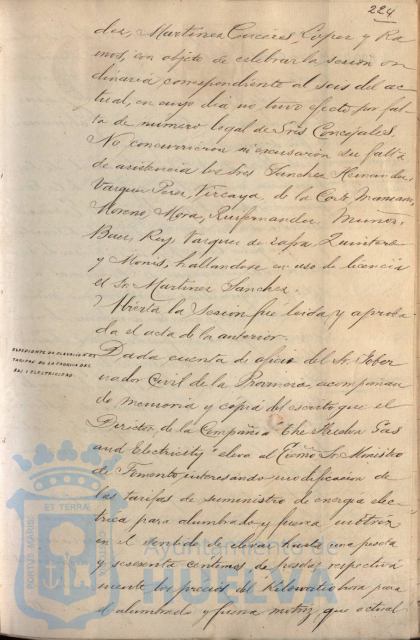 224
der, Martinez Caceres, Lopez y Ra
mos, con objeto de celebrar la sesion or
dinaria correspondiente al seis del ac
tual, en cuyo dia no tuvo efecto por fal
ta de numero legal de Sres Concejales.
No concurrieron ni excusaron su falta
de asistencia los Sres Sanchez Hernandez
Vazquez Perez, Vizcaya, de la Corte
Moreno, Mora, Muñoz
Baez, Rey, Vazquez de Zafra, Quintero
y Monis, hallandose en uso de licencia
el Sr Martinez Sanchez.
Abierta la Sesion fue leida y aproba
da el acta de la anterior.
EXPEDIENTE DE ELEVACION DE
TARIFAS DE LA FABRICA DEL
GAS Y ELECTRICIDAD
Dada cuenta de oficio del Sr Gober
nador Civil de la Provincia acompañan
do memoria y copia del escrito que el
Director de la Compañia "The Huelva Gas
and Electricity" eleva al Excmo Sr Ministro
de Fomento interesando modificacion de
las tarifas de suministro de energia elec
trica para alumbrado y fuerza motriz
en el sentido de elevar hasta una peseta
y sesenta centimos de peseta respectiva
mente los precios del Kilowatio hora para
el alumbrado y fuerza motriz, que actual
PORTUS MARIS
ET TERRAE
Ayuntamiento de
HUELVA